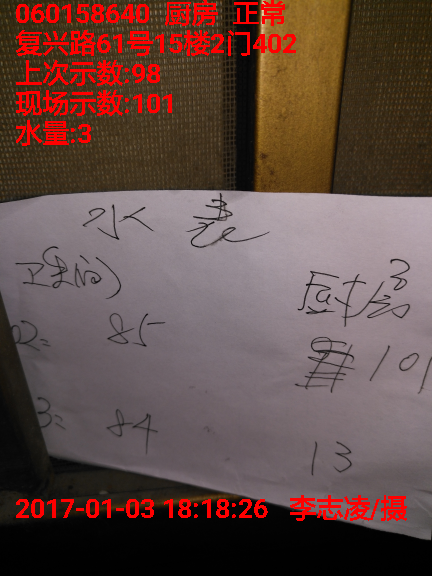 060158640 厨房 正常
复兴路61号15楼2门402
上次示数:98
现场示数:101
水量:3
水表
卫生间 厨房
02= 85 101
3= 84 13
2017-01-03 18:18:26 李志凌/摄